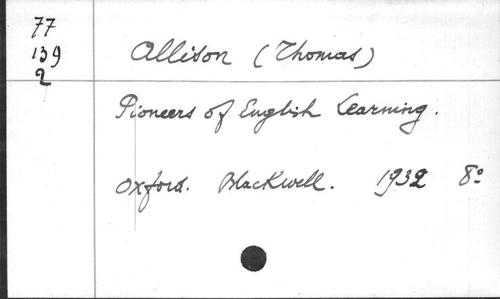 77
139
2
Allison (Thomas)
Pioneers of English Learning.
Oxford. Blackwell. 1932 8º